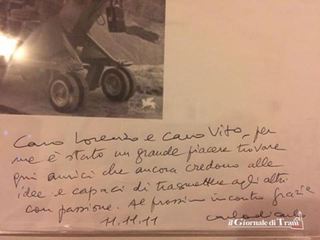 Caro Lorenzo e Caro Vito, per
me è stato un grande piacere trovare
qui amici che ancora credono alle
idee e capaci di trasmettere agli altri
con passione. Al prossimo incontro grazie
11.11.11
il Giornale di Trani